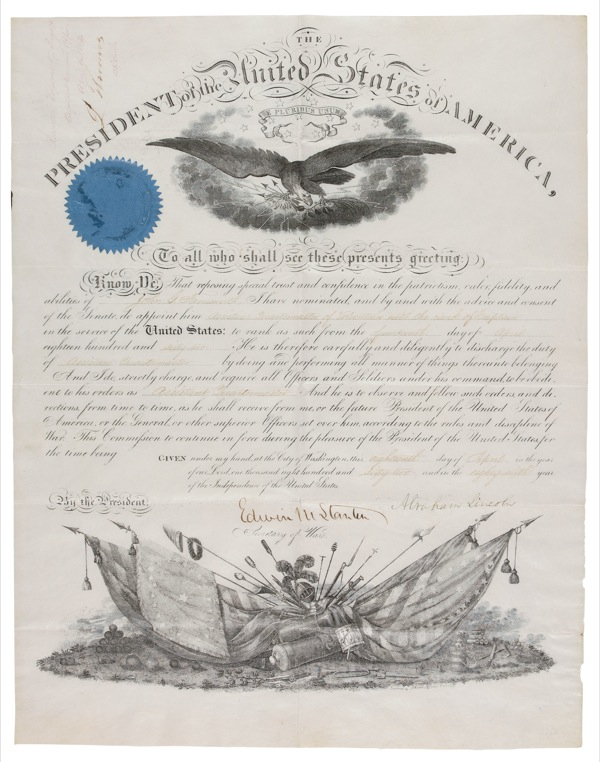 THE
PRESIDENT of the United States of AMERICA,
E PLURIBUS UNUM
To all who shall see these presents greeting:
Know Ye, That reposing special trust and confidence in the patriotism, valor, fidelity, and
abilities of I have nominated, and by and with the advice and consent
of the Senate, do appoint him Assistant Quartermaster of Volunteers with the rank of Captain
in the service of the United States: to rank as such from the day of April
eighteen hundred and He is therefore carefully and diligently to discharge the duty
of Assistant Quartermaster by doing and performing all manner of things thereunto belonging.
And I do strictly charge, and require all Officers and Soldiers under his command, to be obedi-
ent to his orders as Assistant Quartermaster And he is to observe and follow such orders, and di-
rections, from time to time, as he shall receive from me, or the future President of the United States of
America, or the General, or other superior Officers set over him, according to the rules and discipline of
War. This Commission to continue in force during the pleasure of the President of the United States, for
the time being.
GIVEN under my hand, at the City of Washington, this day of April in the year
of our Lord, one thousand eight hundred and and in the year
of the Independence of the United States.
By the President,
Abraham Lincoln
Edwin M Stanton
Secretary of War.